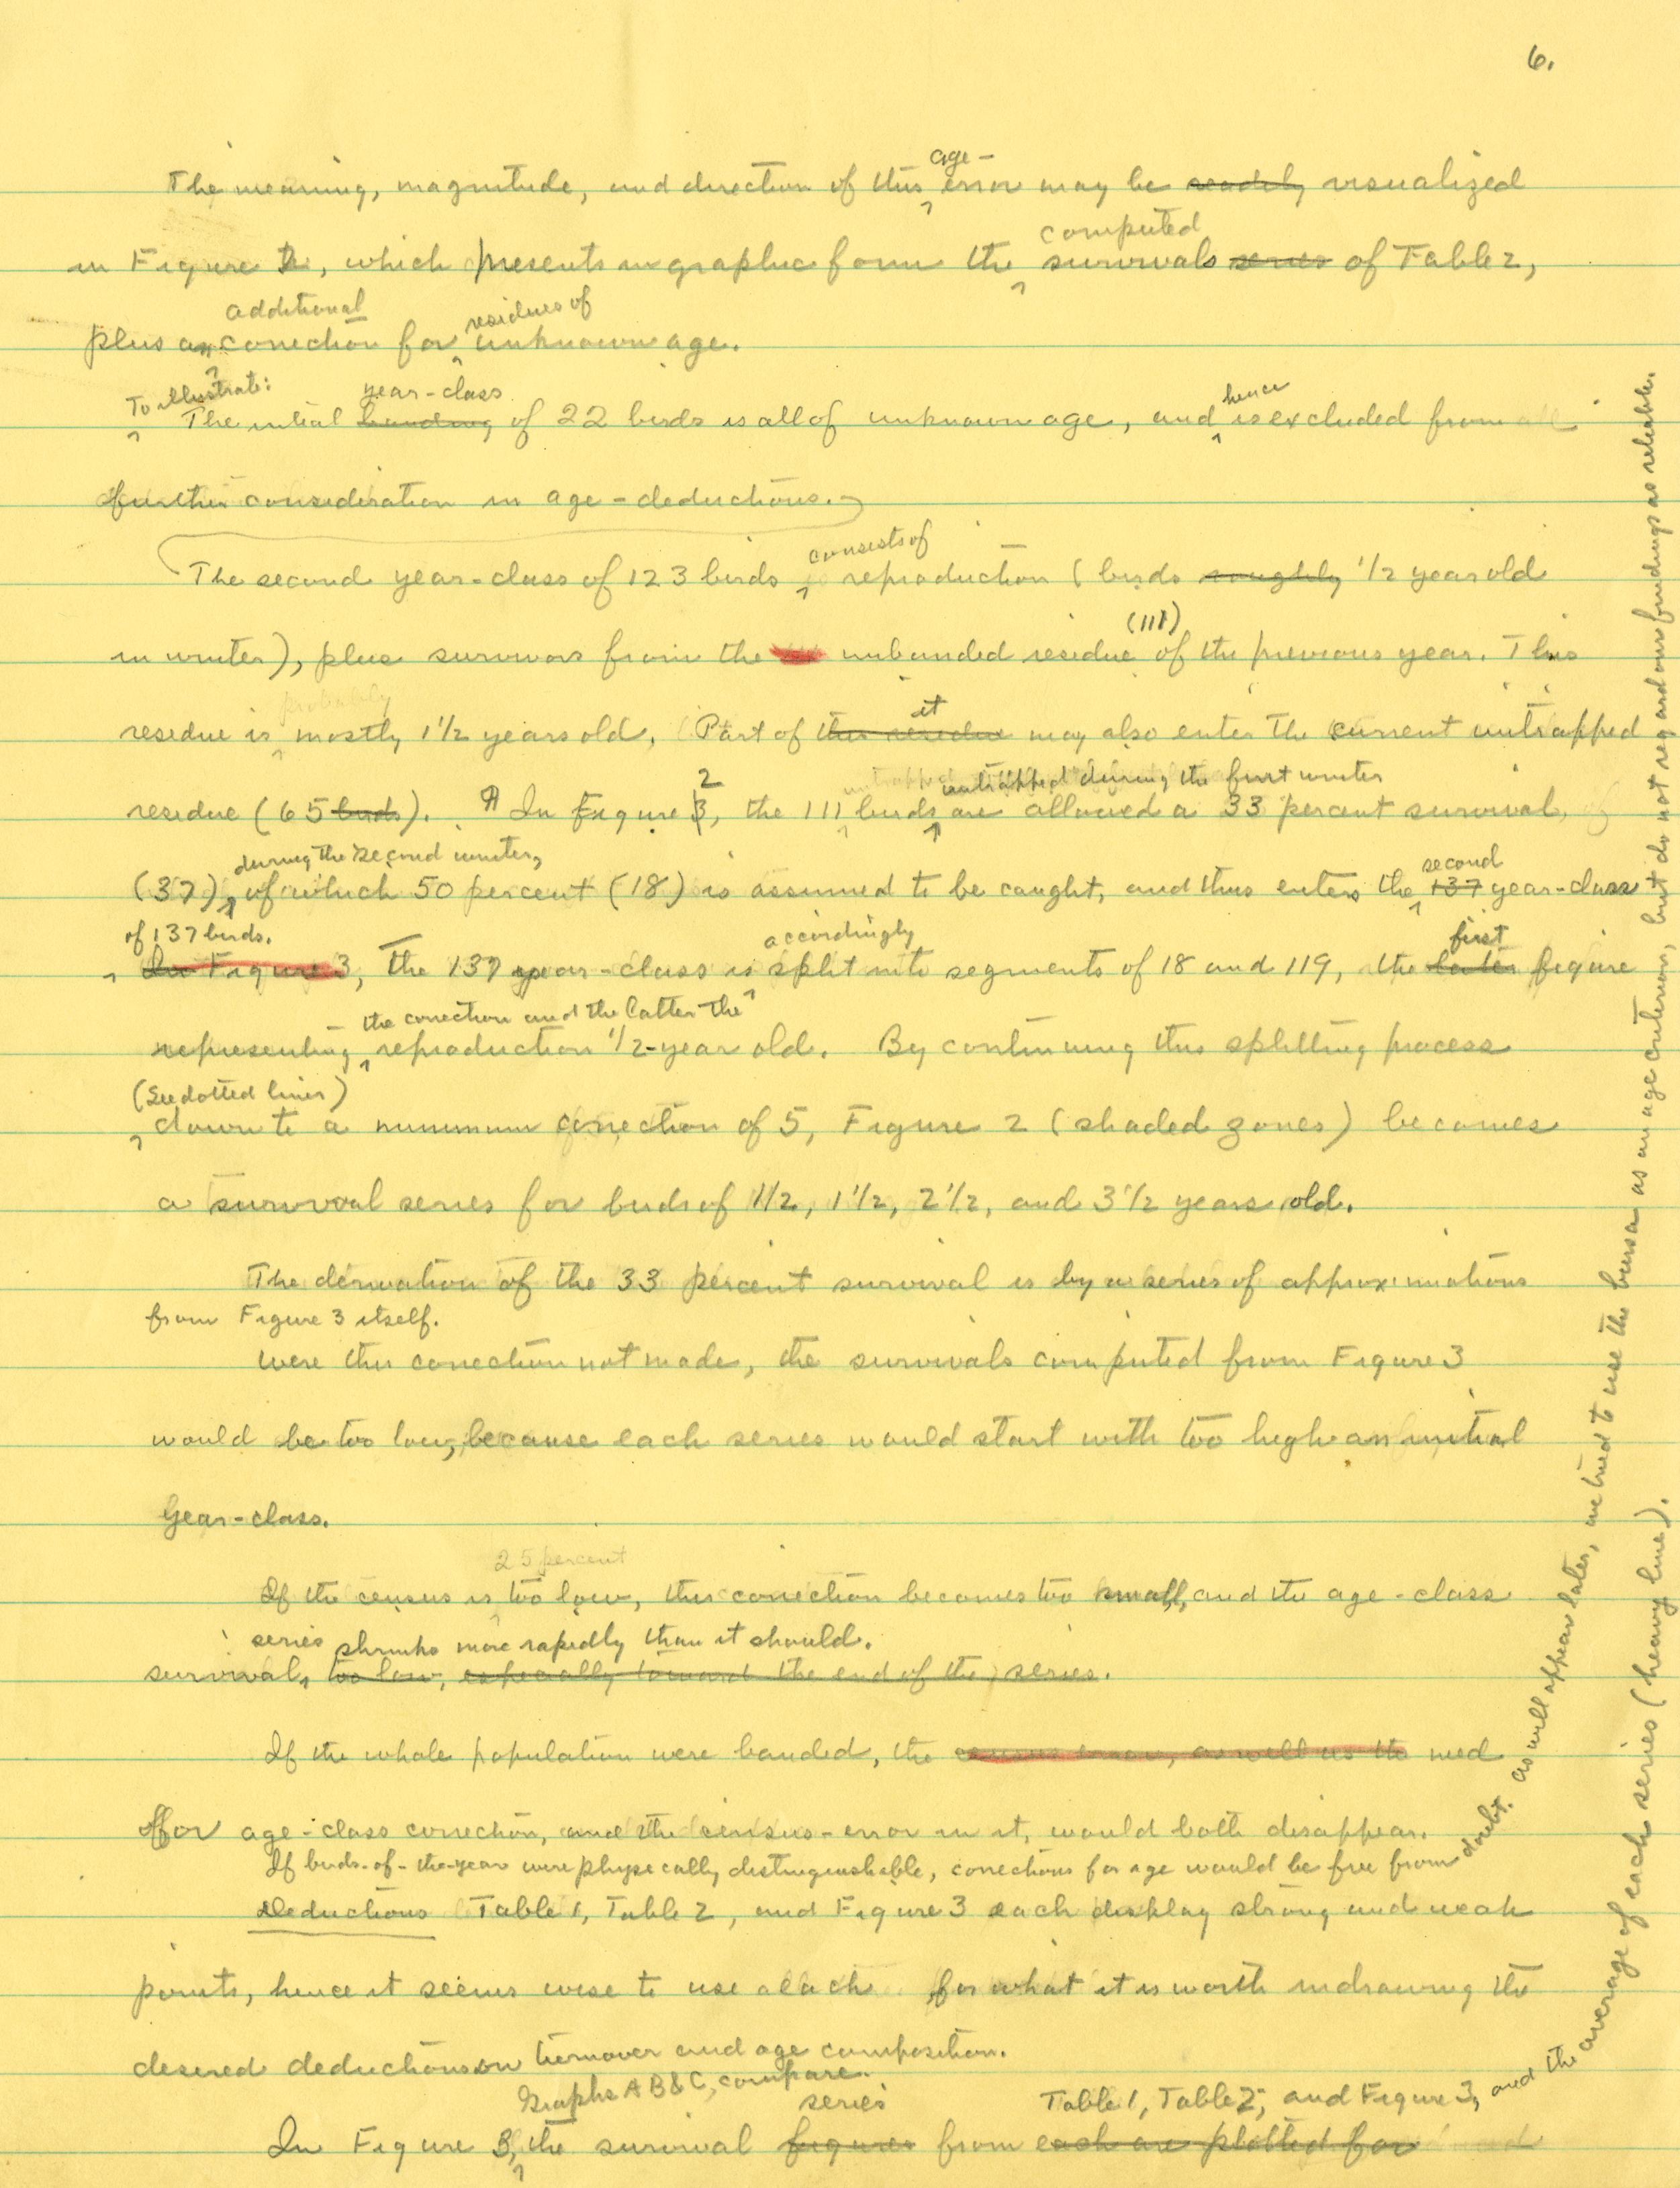 6.
age-
The meaning, magnitude, and direction of this error may be readily visualized
computed
in Figure 2, which presents in graphic form the survivals series of Table 2,
additional residues of
plus an correction for unknown age.
To illustrate: year-class hence
The initial banding of 22 birds is all of unknown age, and is excluded from all
further consideration in age-deductions.
consists of
The second year-class of 123 birds reproduction (birds roughly 1/2 year old
(111)
in winter), plus survivors from the unbanded residue of the previous year. This
probably it
residue is mostly 1 1/2 years old. Part of this residue may also enter the current untrapped
2 untrapped during the first winter
residue (65 birds). ¶ In Figure 3, the 111 birds are allowed a 33 percent survival,
during the second winter, second
(37), of which 50 percent (18) is assumed to be caught, and thus enters the 137 year-class
of 137 birds. accordingly first
In Figure 3, The 137 year-class is split into segments of 18 and 119, the latter figure
the correction and the latter the
representing reproduction 1/2-year old. By continuing this splitting process
(See dotted lines)
down to a minimum correction of 5, Figure 2 (shaded zones) becomes
a survival series for birds of 1/2, 1 1/2, 2 1/2, and 3 1/2 years old.
The derivation of the 33 percent survival is by a series of approximations
from Figure 3 itself.
Were this correction not made, the survivals computed from Figure 3
would be too low, because each series would start with too high an initial
year-class.
25 percent
If the census is too low, this correction becomes too small, and the age-class
series shrinks more rapidly than it should.
survival, too low, especially toward the end of the series.
If the whole population were banded, the census error, as well as the need
for age-class correction, and the census-error in it, would both disappear.
If birds-of-the-year were physically distinguishable, corrections for age would be free from doubt. as will appear later, we tried to use the bursa as an age criterion, but do not regard our findings as reliable.
Deductions Table 1, Table 2, and Figure 3 each display strong and weak
points, hence it seems wise to use each for what it is worth in drawing the
desired deductions on turnover and age composition.
Graphs A B & C, compare series Table 1, Table 2, and Figure 3, and the average of each series (heavy line).
In Figure 3, the survival figures from each are plotted for